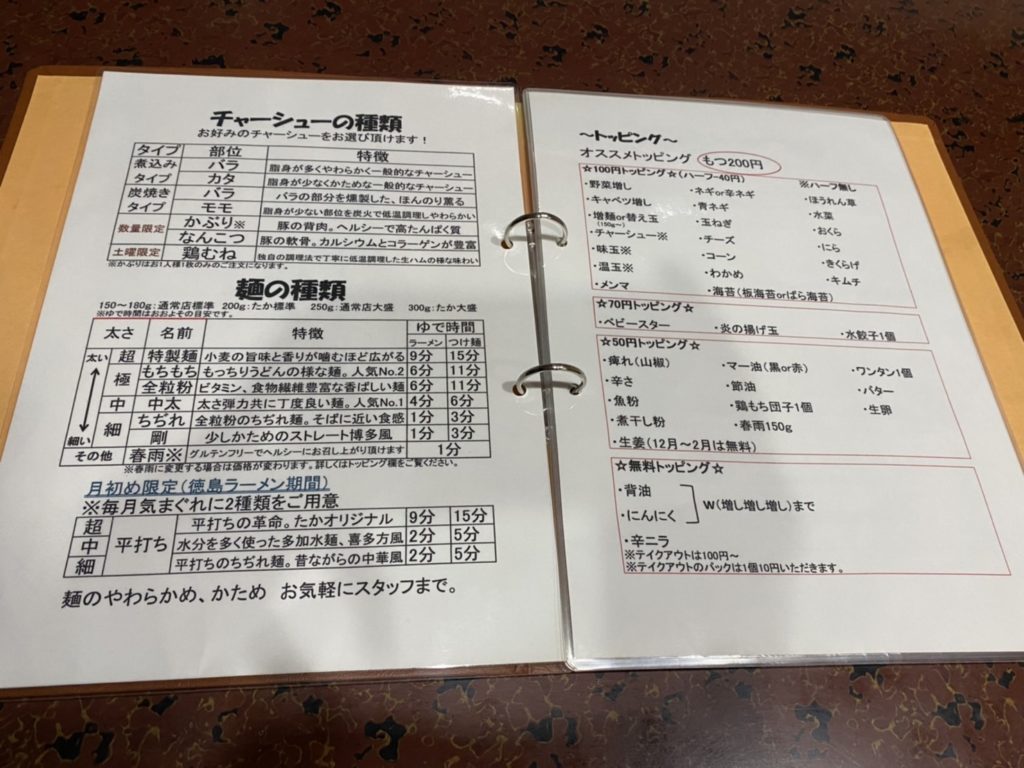 チャーシューの種類
お好みのチャーシューをお選び頂けます！
タイプ 部位 特徴
煮込みタイプ バラ 脂身が多くやわらかく一般的なチャーシュー
カタ 脂身が少なくかためな一般的なチャーシュー
炭焼きタイプ バラ バラの部分を燻製した、ほんのり薫る
モモ 脂身が少ない部位を炭火で低温調理しやわらかい
数量限定 かぶり※ 豚の背肉。ヘルシーで高たんぱく質
なんこつ 豚の軟骨。カルシウムとコラーゲンが豊富
土曜限定 鶏むね 独自の調理法で丁寧に低温調理した生ハムの様な味わい
※かぶりはお1人様1枚のみのご注文になります。
麺の種類
150～180g:通常店標準 200g:たか標準 250g:通常店大盛 300g:たか大盛
※ゆで時間はおおよその目安です。
太さ 名前 特徴 ゆで時間
ラーメン つけ麺
太い 超 特製麺 小麦の旨味と香りが噛むほど広がる 9分 15分
極 もちもち もっちりうどんの様な麺。人気No.2 6分 11分
全粒粉 ビタミン、食物繊維豊富な香ばしい麺 6分 11分
中 中太 太さ弾力共に丁度良い麺。人気No.1 4分 6分
細 ちぢれ 全粒粉のちぢれ麺。そばに近い食感 1分 3分
細い 剛 少しかためのストレート博多風 1分 3分
その他 春雨※ グルテンフリーでヘルシーにお召し上がり頂けます 1分
※春雨に変更する場合は価格が変わります。詳しくはトッピング欄をご覧ください。
月初め限定(徳島ラーメン期間)
※毎月気まぐれに2種類をご用意
超 平打ち 平打ちの革命。たかオリジナル 9分 15分
中 水分を多く使った多加水麺、喜多方風 2分 5分
細 平打ちのちぢれ麺。昔ながらの中華風 2分 5分
麺のやわらかめ、かため お気軽にスタッフまで。
～トッピング～
オススメトッピング もつ200円
☆100円トッピング☆(ハーフ-40円)
・野菜増し ・ネギor辛ネギ ※ハーフ無し
・キャベツ増し ・青ネギ ・ほうれん草
・増麺or替え玉 ・玉ねぎ ・水菜
(150g～)
・チャーシュー※ ・チーズ ・おくら
・味玉※ ・コーン ・にら
・温玉※ ・わかめ ・きくらげ
・メンマ ・海苔(板海苔orばら海苔) ・キムチ
☆70円トッピング☆
・ベビースター ・炎の揚げ玉 ・水餃子1個
☆50円トッピング☆
・痺れ(山椒) ・マー油(黒or赤) ・ワンタン1個
・辛さ ・節油 ・バター
・魚粉 ・鶏もち団子1個 ・生卵
・煮干し粉 ・春雨150g
・生姜(12月～2月は無料)
☆無料トッピング☆
・背油
・にんにく W(増し増し増し)まで
・辛ニラ
※テイクアウトは100円～
※テイクアウトのパックは1個10円いただきます。